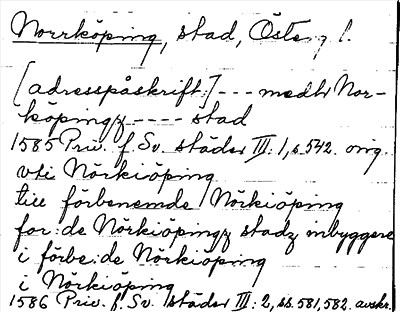 Norrköping, stad, Österg l.
[adresspåskrift:] - - - medh Nor-
köpingz - - - - stad
1585 Priv. f. Sv. städer III: 1, s 542. orig.
vti Nörkiöping
till förbenemde Nörkiöping
for:de Nörkiöpingz stadz inbyggere
i förbe:de Nörkiöping
i Nörkiöping
1586 Priv. f. Sv. städer III: 2, ss. 581, 582. avskr.